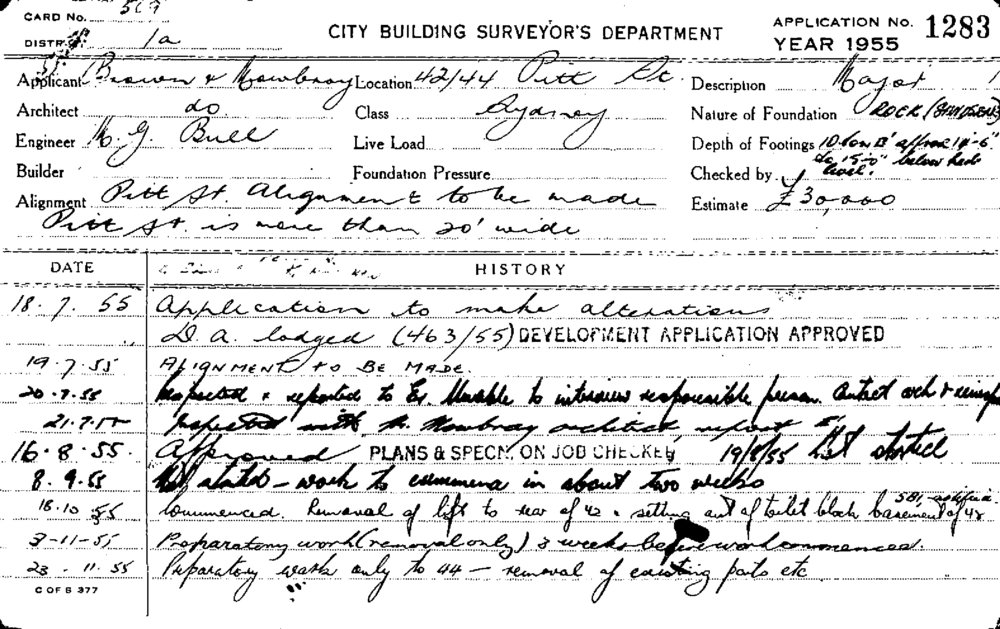 CARD No. 569
CITY BUILDING SURVEYOR'S DEPARTMENT
APPLICATION No. 1283
DISTRICT 1a
YEAR 1955
Applicant Brown & Mowbray Location 42/44 Pitt St. Description Major
Architect do Class Sydney Nature of Foundation ROCK (SANDSTONE)
Engineer M. G. Bull Live Load Depth of Footings approx 14'-6"
Builder Foundation Pressure Checked by
Alignment Pitt St. Alignment to be made Estimate £30,000
Pitt St. is more than 20' wide
DATE HISTORY
18.7.55 Application to make alterations
D.A. lodged (463/55) DEVELOPMENT APPLICATION APPROVED
19.7.55 ALIGNMENT TO BE MADE.
20.7.55 Inspected & reported to Er. Unable to interview responsible person. Contact arch &
21.7.55 Inspected with Mr. Mowbray architect, report
16.8.55. Approved PLANS & SPECN. ON JOB CHECKED 19/8/55 Not started
8.9.55 Not started – work to commence in about two weeks
18.10.55 Commenced. Removal of lift to rear of 42 & setting out of toilet block basement of 42
3-11-55 Preparatory work (removal only) 3 weeks before work commenced.
23.11.55 Preparatory work only to 44 – removal of existing parts etc
C OF S 377